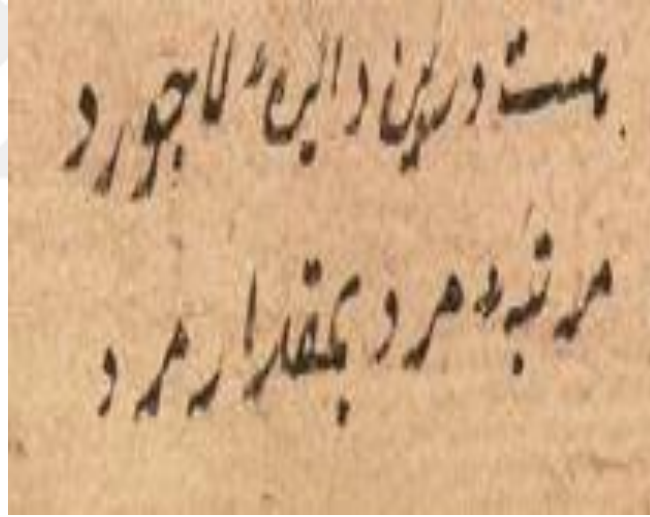 هست درین دایرهٔ لاجورد
مرتبهٔ مرد بمقدار مرد